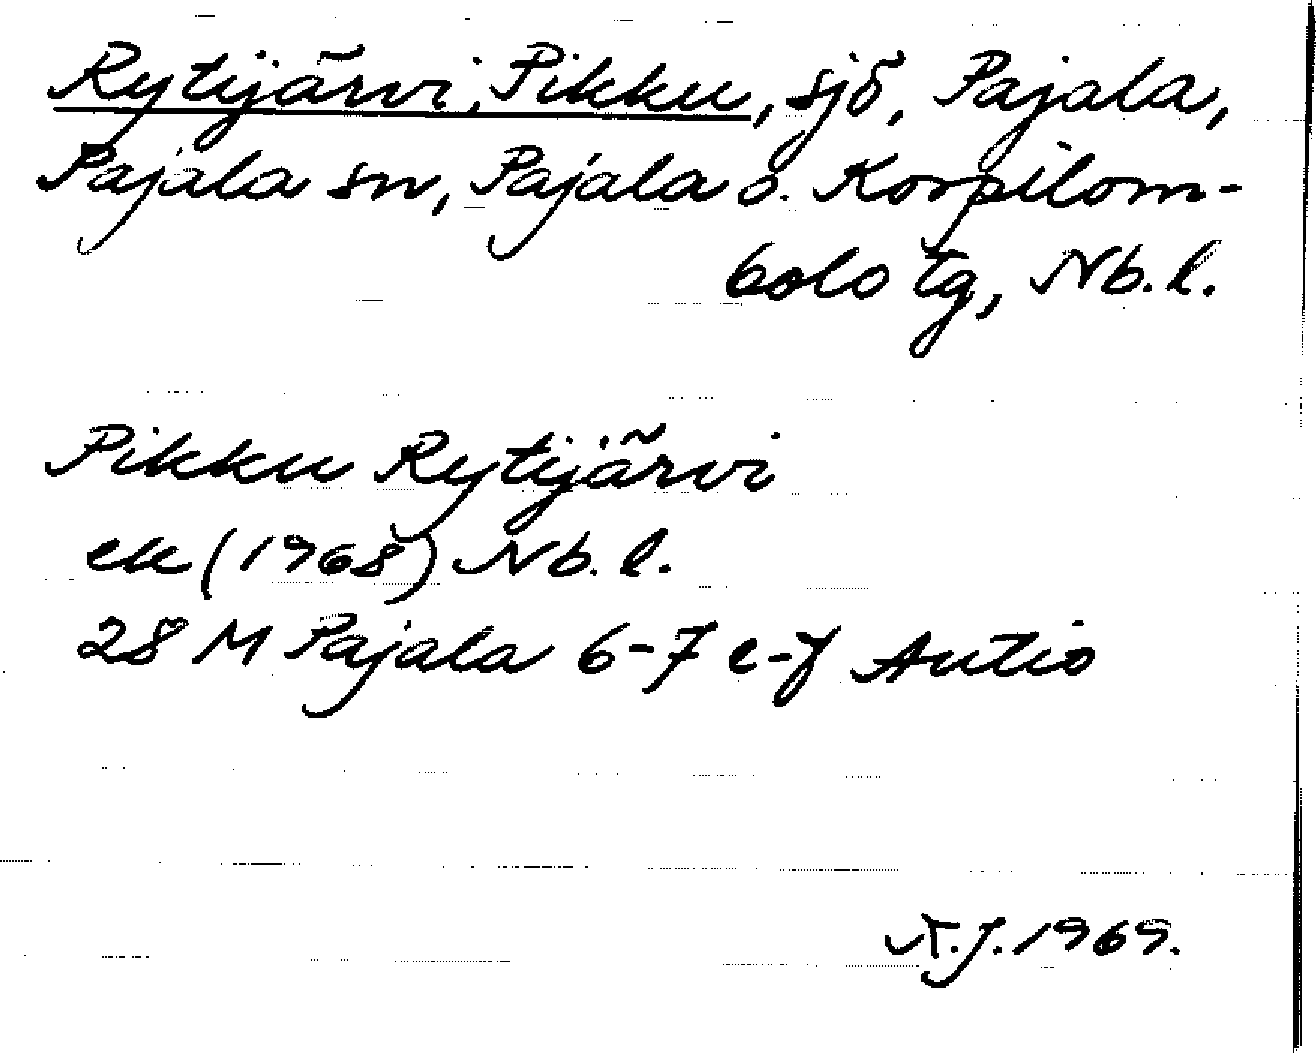 Rytijärvi, Pikku, sjö, Pajala,
Pajala sn, Pajala o. Korpilom-
bolo tg, Nb.l.
Pikku Rytijärvi
ek (1968) Nb.l.
28 M Pajala 6-7 e-f Autio
N.J. 1969.